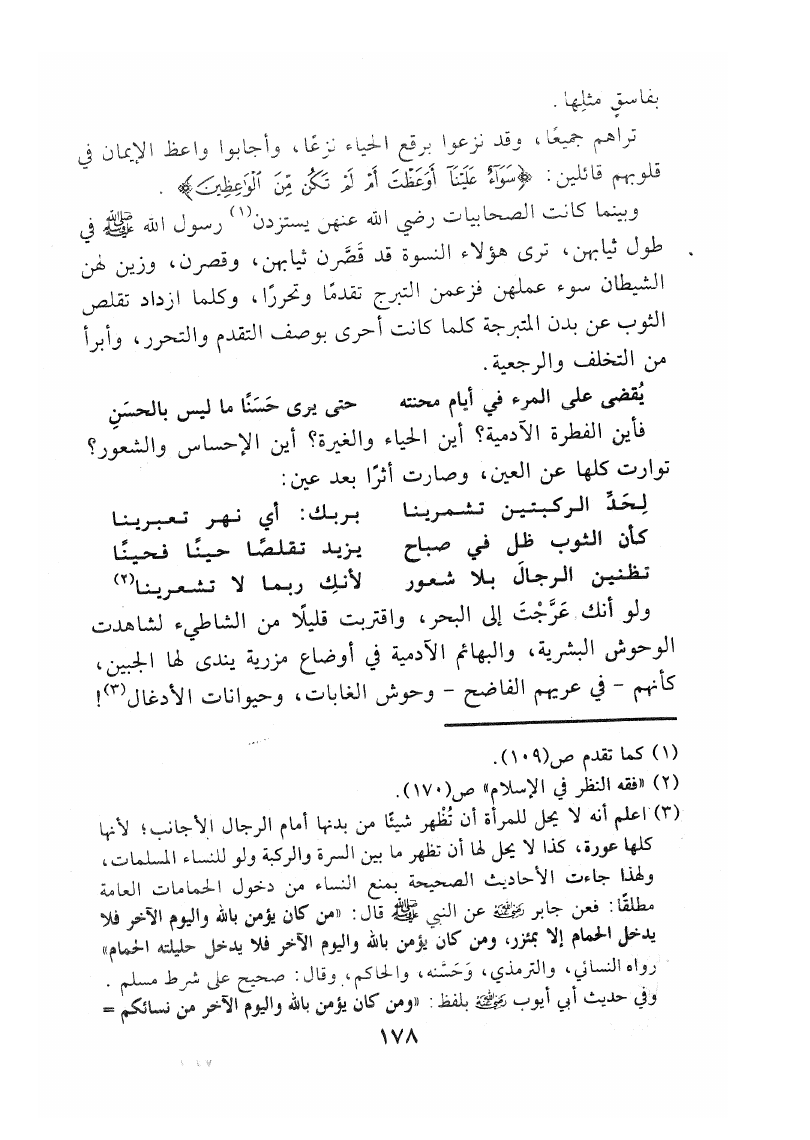 بفاسقٍ مثلِها .
تراهم جميعًا، وقد نزعوا برقع الحياء نزعًا، وأجابوا واعظ الإيمان في
قلوبهم قائلين: ﴿سَوَآءٌ عَلَيْنَآ أَوَعَظْتَ أَمْ لَمْ تَكُن مِّنَ ٱلْوَاعِظِينَ﴾ .
وبينما كانت الصحابيات رضي الله عنهن يستزدن(١) رسول الله ﷺ في
طول ثيابهن، ترى هؤلاء النسوة قد قَصَّرن ثيابهن، وقصرن، وزين لهن
الشيطان سوء عملهن فزعمن التبرج تقدمًا وتحررًا، وكلما ازداد تقلص
الثوب عن بدن المتبرجة كلما كانت أحرى بوصف التقدم والتحرر، وأبرأ
من التخلف والرجعية.
يُقضى على المرء في أيام محنته حتى يرى حَسَنًا ما ليس بالحسَنِ
فأين الفطرة الآدمية؟ أين الحياء والغيرة؟ أين الإحساس والشعور؟
توارت كلها عن العين، وصارت أثرًا بعد عين:
لِحَدِّ الركبتين تشمرينا بربك: أي نهر تعبرينا
كأن الثوب ظل في صباح يزيد تقلصًا حينًا فحينًا
تظنين الرجالَ بلا شعور لأنكِ ربما لا تشعرينا(٢)
ولو أنك عَرَّجْتَ إلى البحر، واقتربت قليلًا من الشاطيء لشاهدت
الوحوش البشرية، والبهائم الآدمية في أوضاع مزرية يندى لها الجبين،
كأنهم - في عريهم الفاضح - وحوش الغابات، وحيوانات الأدغال(٣)!
(١) كما تقدم ص(١٠٩).
(٢) «فقه النظر في الإسلام» ص(١٧٠).
(٣) اعلم أنه لا يحل للمرأة أن تُظْهر شيئًا من بدنها أمام الرجال الأجانب؛ لأنها
كلها عورة، كذا لا يحل لها أن تظهر ما بين السرة والركبة ولو للنساء المسلمات،
ولهذا جاءت الأحاديث الصحيحة بمنع النساء من دخول الحمامات العامة
مطلقًا: فعن جابر رضي الله عنه عن النبي ﷺ قال: «من كان يؤمن بالله واليوم الآخر فلا
يدخل الحمام إلا بمئزر، ومن كان يؤمن بالله واليوم الآخر فلا يدخل حليلته الحمام»
رواه النسائي، والترمذي، وَحَسَّنه، والحاكم، وقال: صحيح على شرط مسلم .
وفي حديث أبي أيوب رضي الله عنه بلفظ: «ومن كان يؤمن بالله واليوم الآخر من نسائكم =
١٧٨